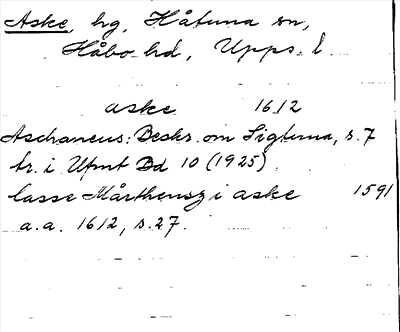 Aske, hg, Håtuna sn,
Håbo hd, Upps. l.
aske 1612
Aschaneus: Beskr. om Sigtuna, s. 7
tr. i Ufmt Bd 10 (1925)
lasse Mårthensz i aske 1591
a.a. 1612, s. 27.